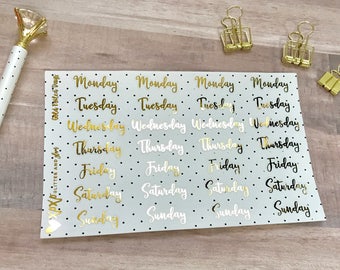 Monday Monday Monday Monday
Tuesday Tuesday Tuesday Tuesday
Wednesday Wednesday Wednesday Wednesday
Thursday Thursday Thursday Thursday
Friday Friday Friday Friday
Saturday Saturday Saturday Saturday
Sunday Sunday Sunday Sunday